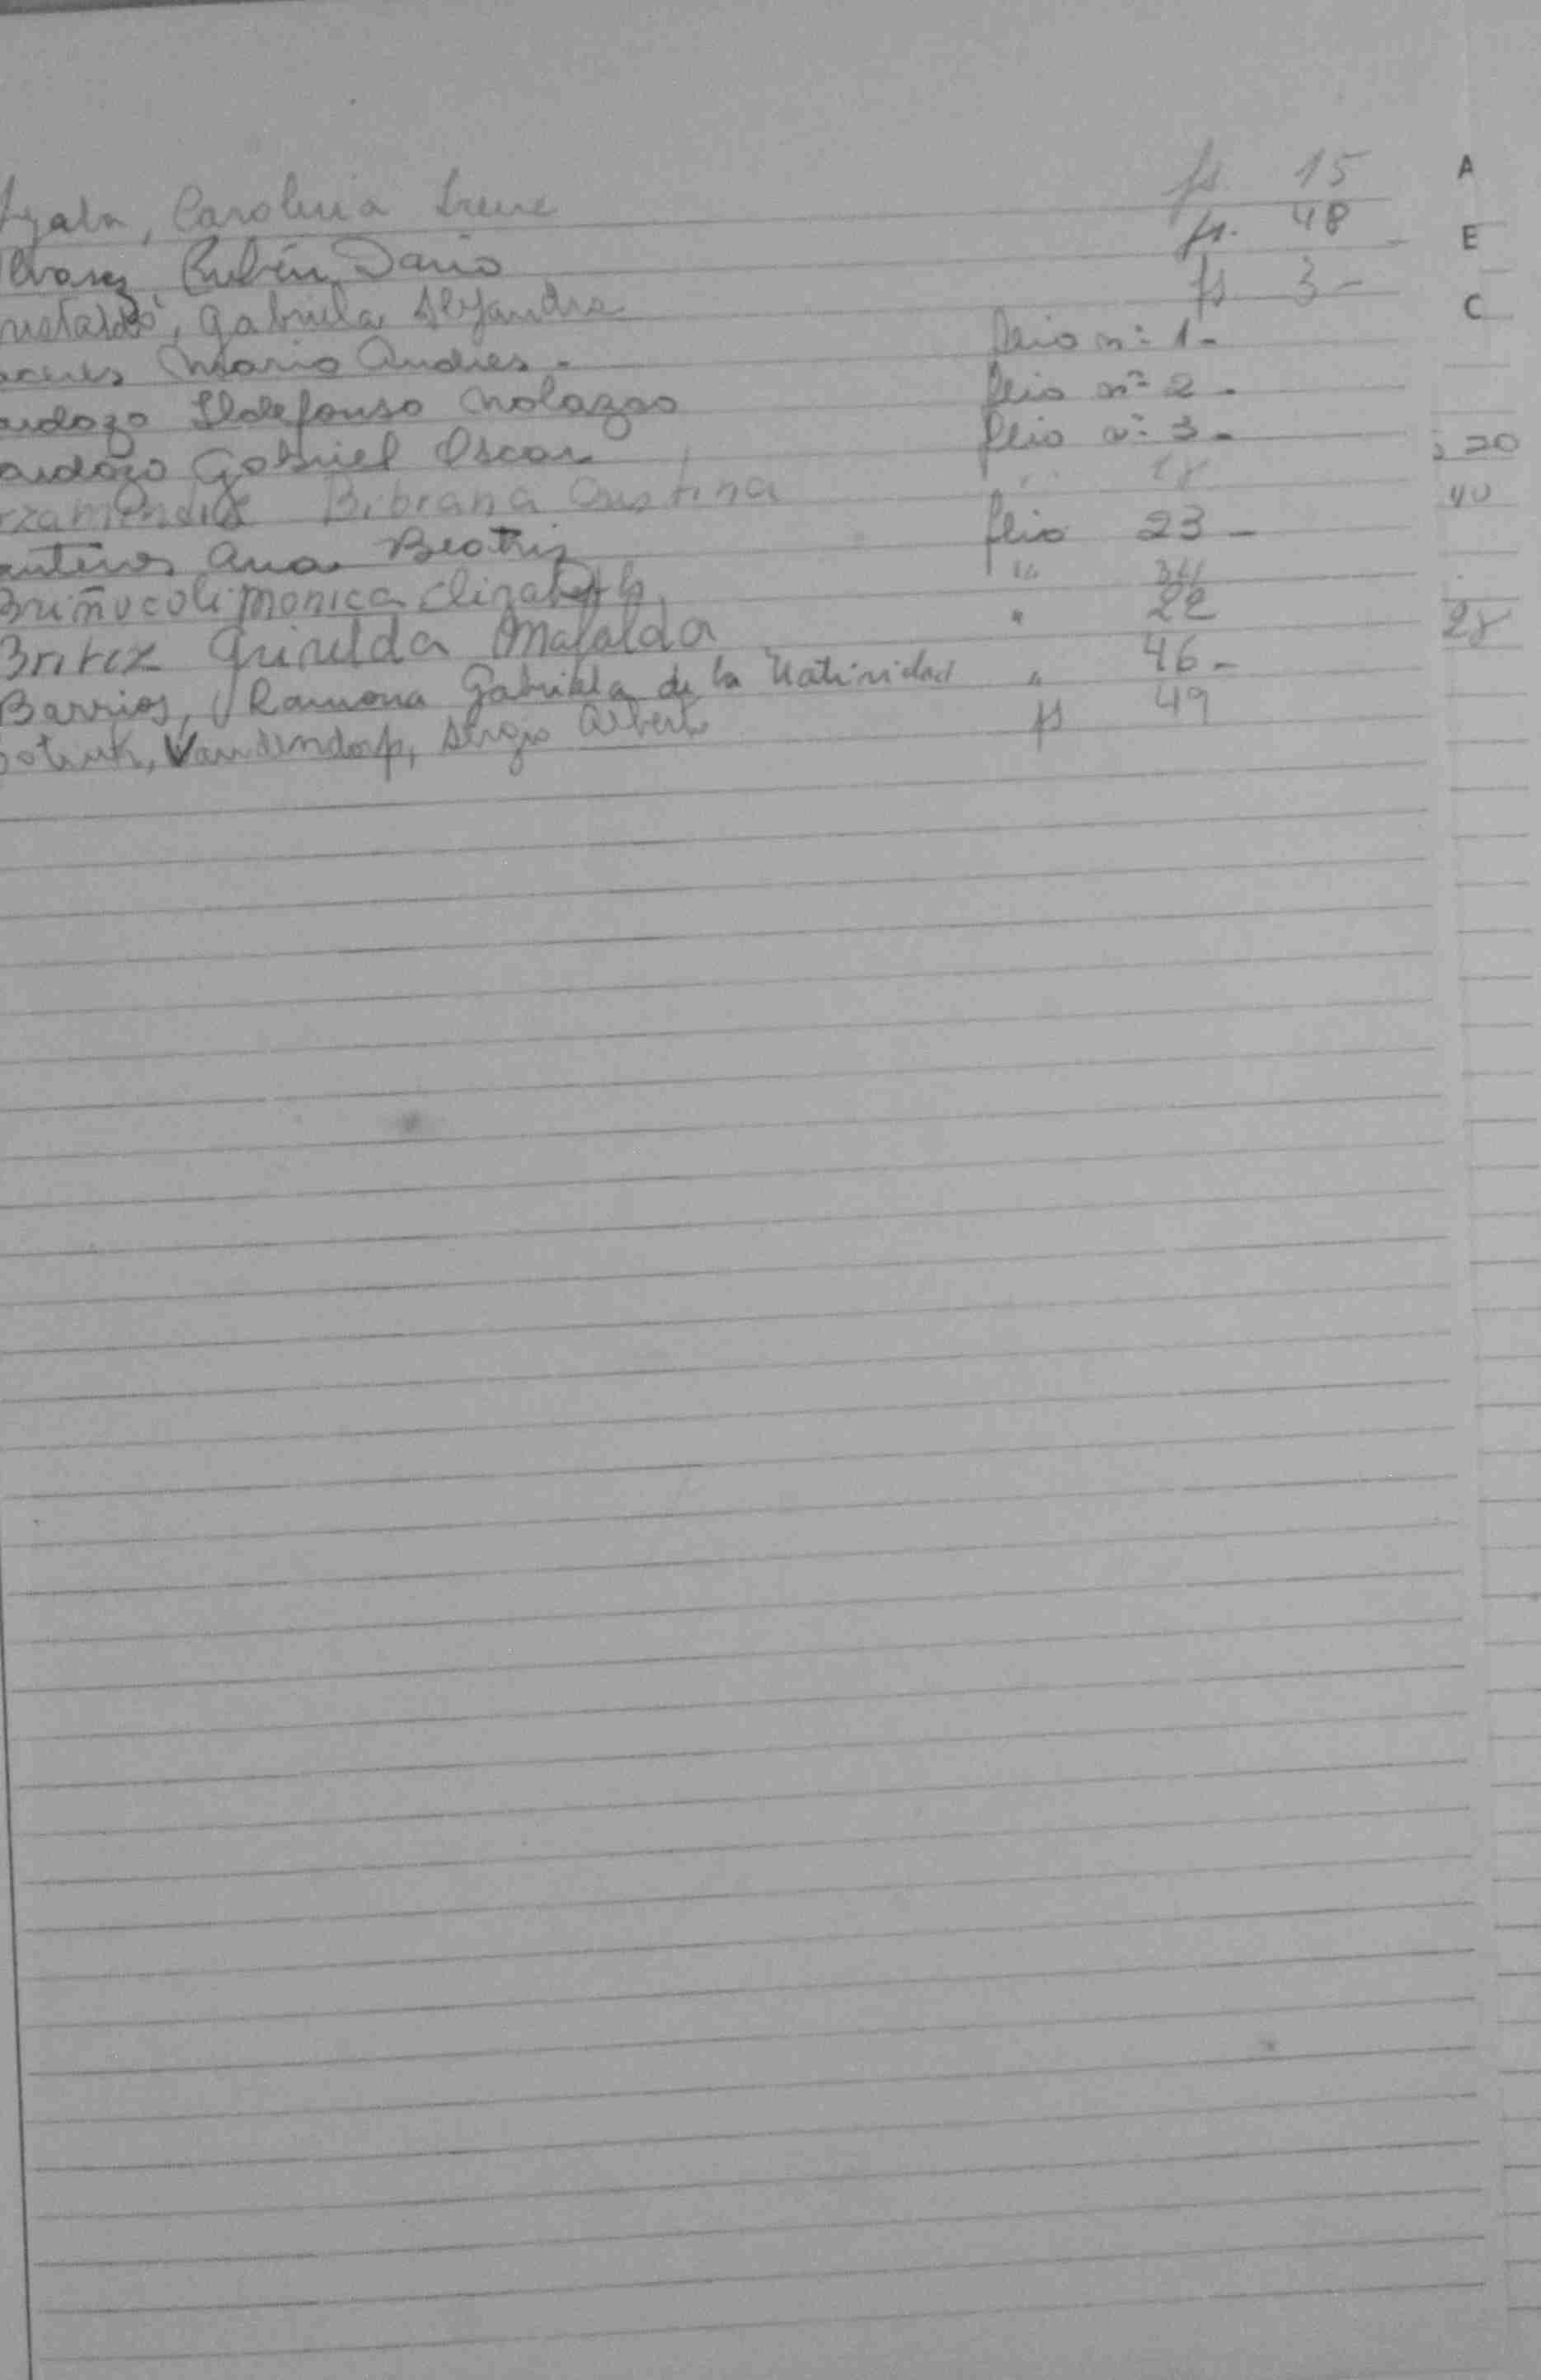 Ayala, Carolina Irene fs 15
lvarez Rubén Dario fs. 48
Gabriela Alejandra fs 3-
Mario Andres - flio nº 1-
ardozo Ildefonso Nolazco flio nº 2-
ardozo Gabriel Oscar flio nº 3-
rzamendia Bibiana Cristina " 18
anteros Ana Beatriz flio 23-
Briñocoli Monica Elizabeth " 34
Britez Griselda Mafalda " 22
Barrios, Ramona Gabriela de la Natividad " 46-
Vandendorp, Sergio Alberto fs 49
A
E
C
20
40
28